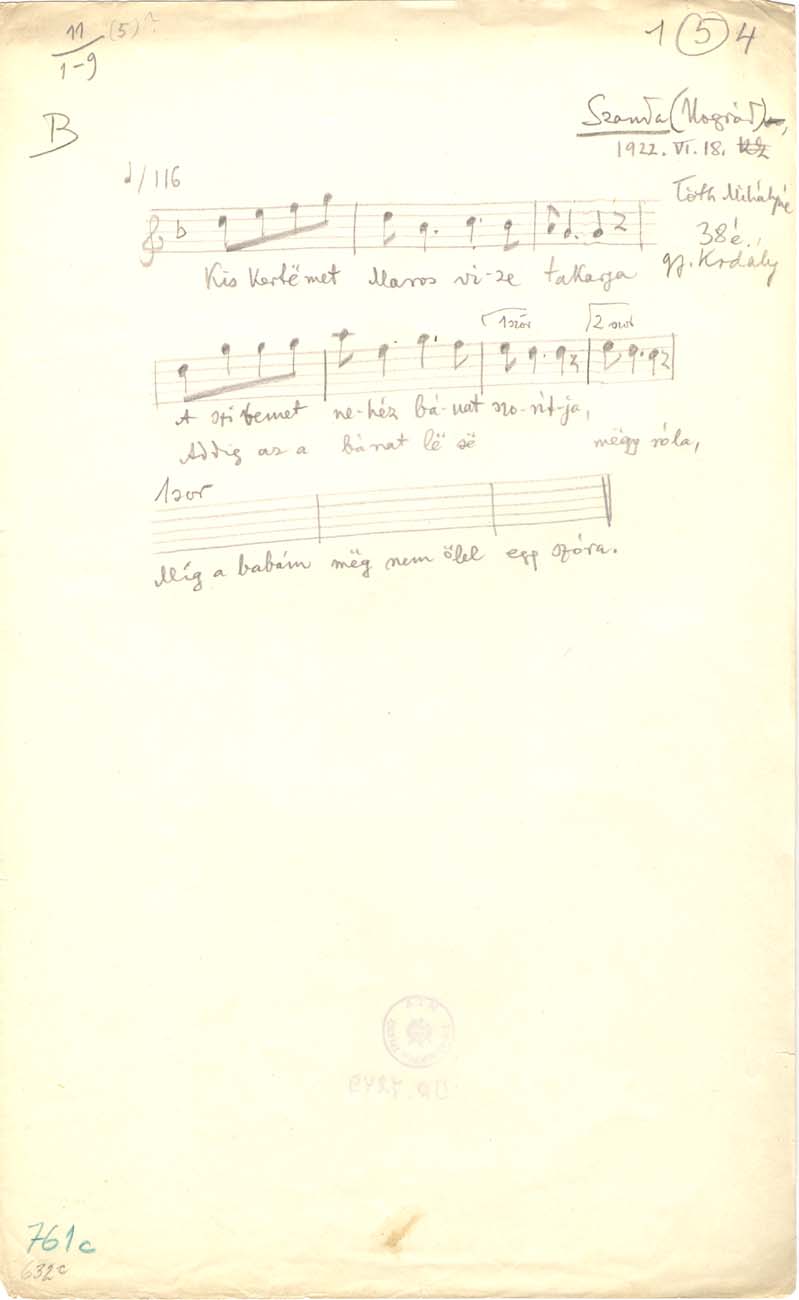 11 (5)?
1-9
1 (5) 4
B
Szanda (Nógrád),
1922. VI. 18.
/ 116
Tóth Mihályné
38 é.
gy. Krdály
Kis kertëmet Maros vi-ze takarja
1szór 2 szor
A szivemet ne-héz bá-nat szo-rít-ja,
Addig az a bánat lë së mëgy róla,
1szor
Míg a babám mëg nem ölel egy szóra.
761c
632c